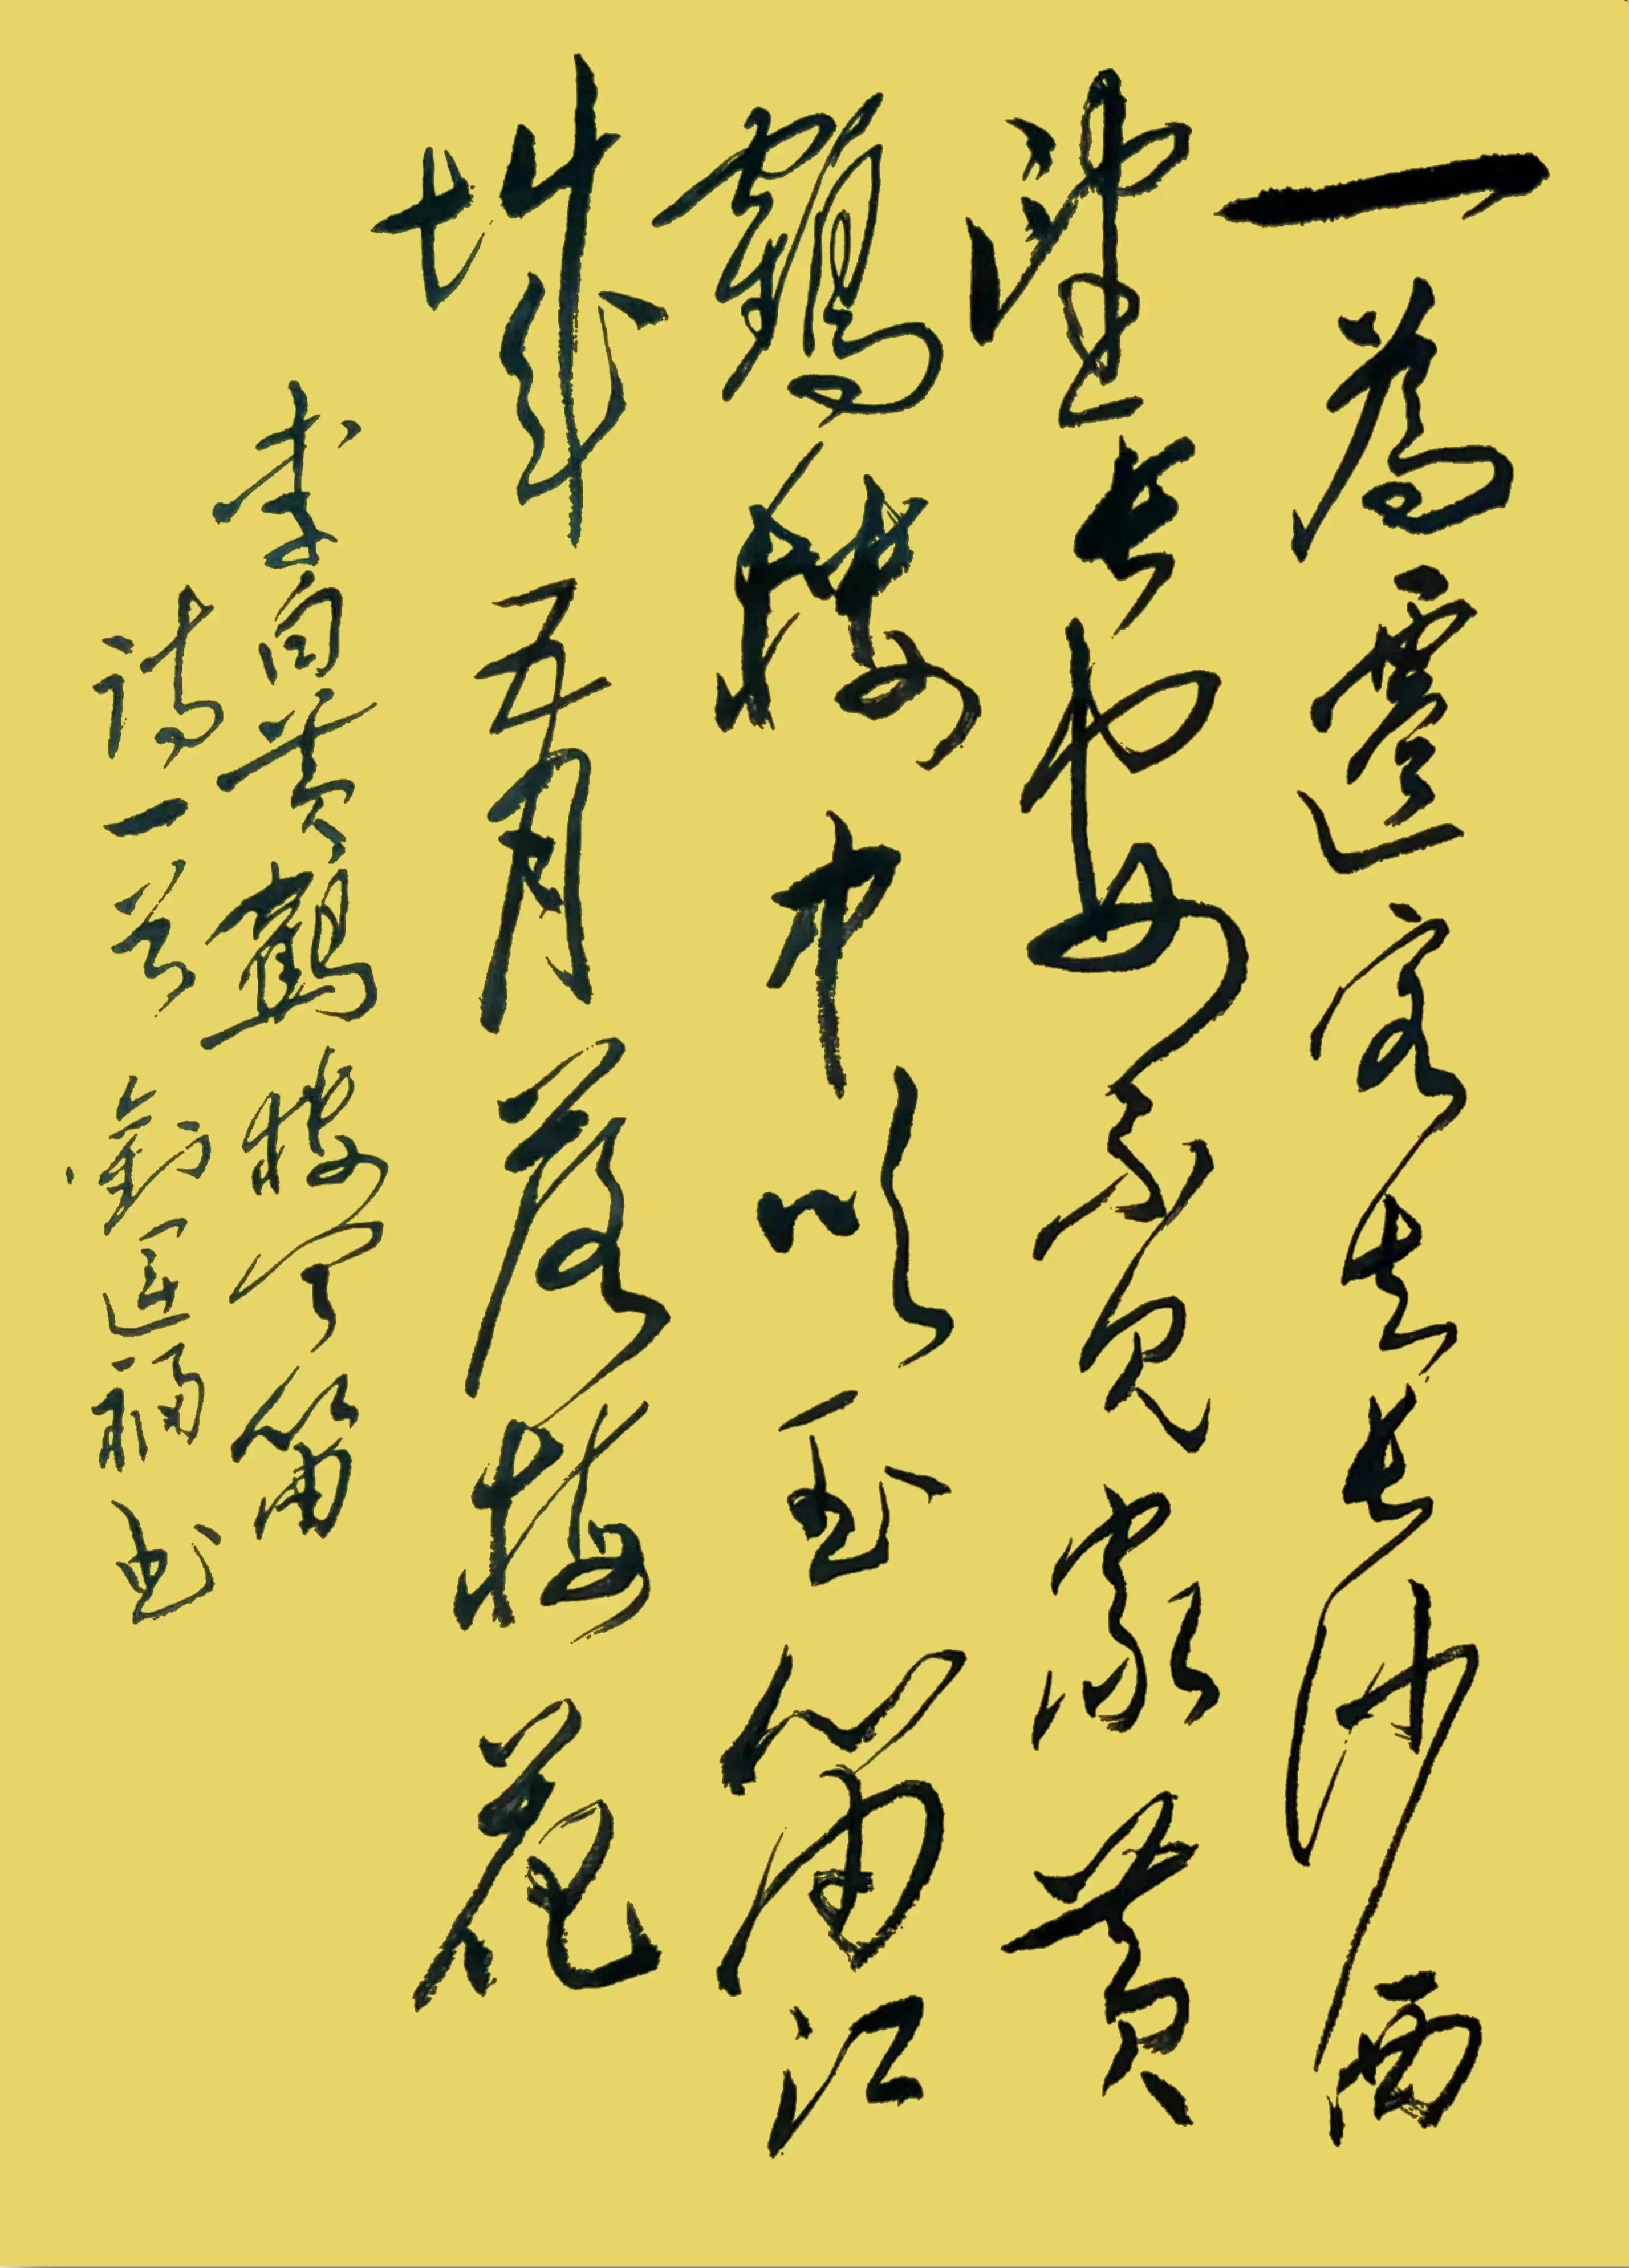 一為遷客去長沙西
望長安不見家黄
鶴樓中吹玉笛江
城五月落梅花
李白黄鶴樓聞笛
詩一首 劉匡福書